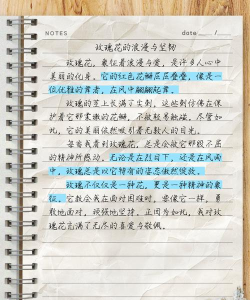 NOTES
date
玫瑰花的浪漫与坚韧
玫瑰花，象征着浪漫与爱，是许多人心中
美丽的化身。它的红色花瓣层层叠叠，像是一
位优雅的舞者，在风中翩翩起舞。
玫瑰的茎上长满了尖刺，这些刺仿佛在保
护着它那柔嫩的花瓣，不敢轻易触碰。尽管如
此，它的美丽依然吸引着无数人的目光。
每当我看到玫瑰花，总是会被它那股不屈
的精神所感动。无论是在烈日下，还是在风雨
中，玫瑰总是以它特有的姿态傲然绽放。
玫瑰不仅仅是一种花，更是一种精神的象
征。它教会我在面对困难时，要像它一样，勇
敢地面对，顽强地坚持。正因为如此，我对玫
瑰花充满了无尽的喜爱与敬佩。